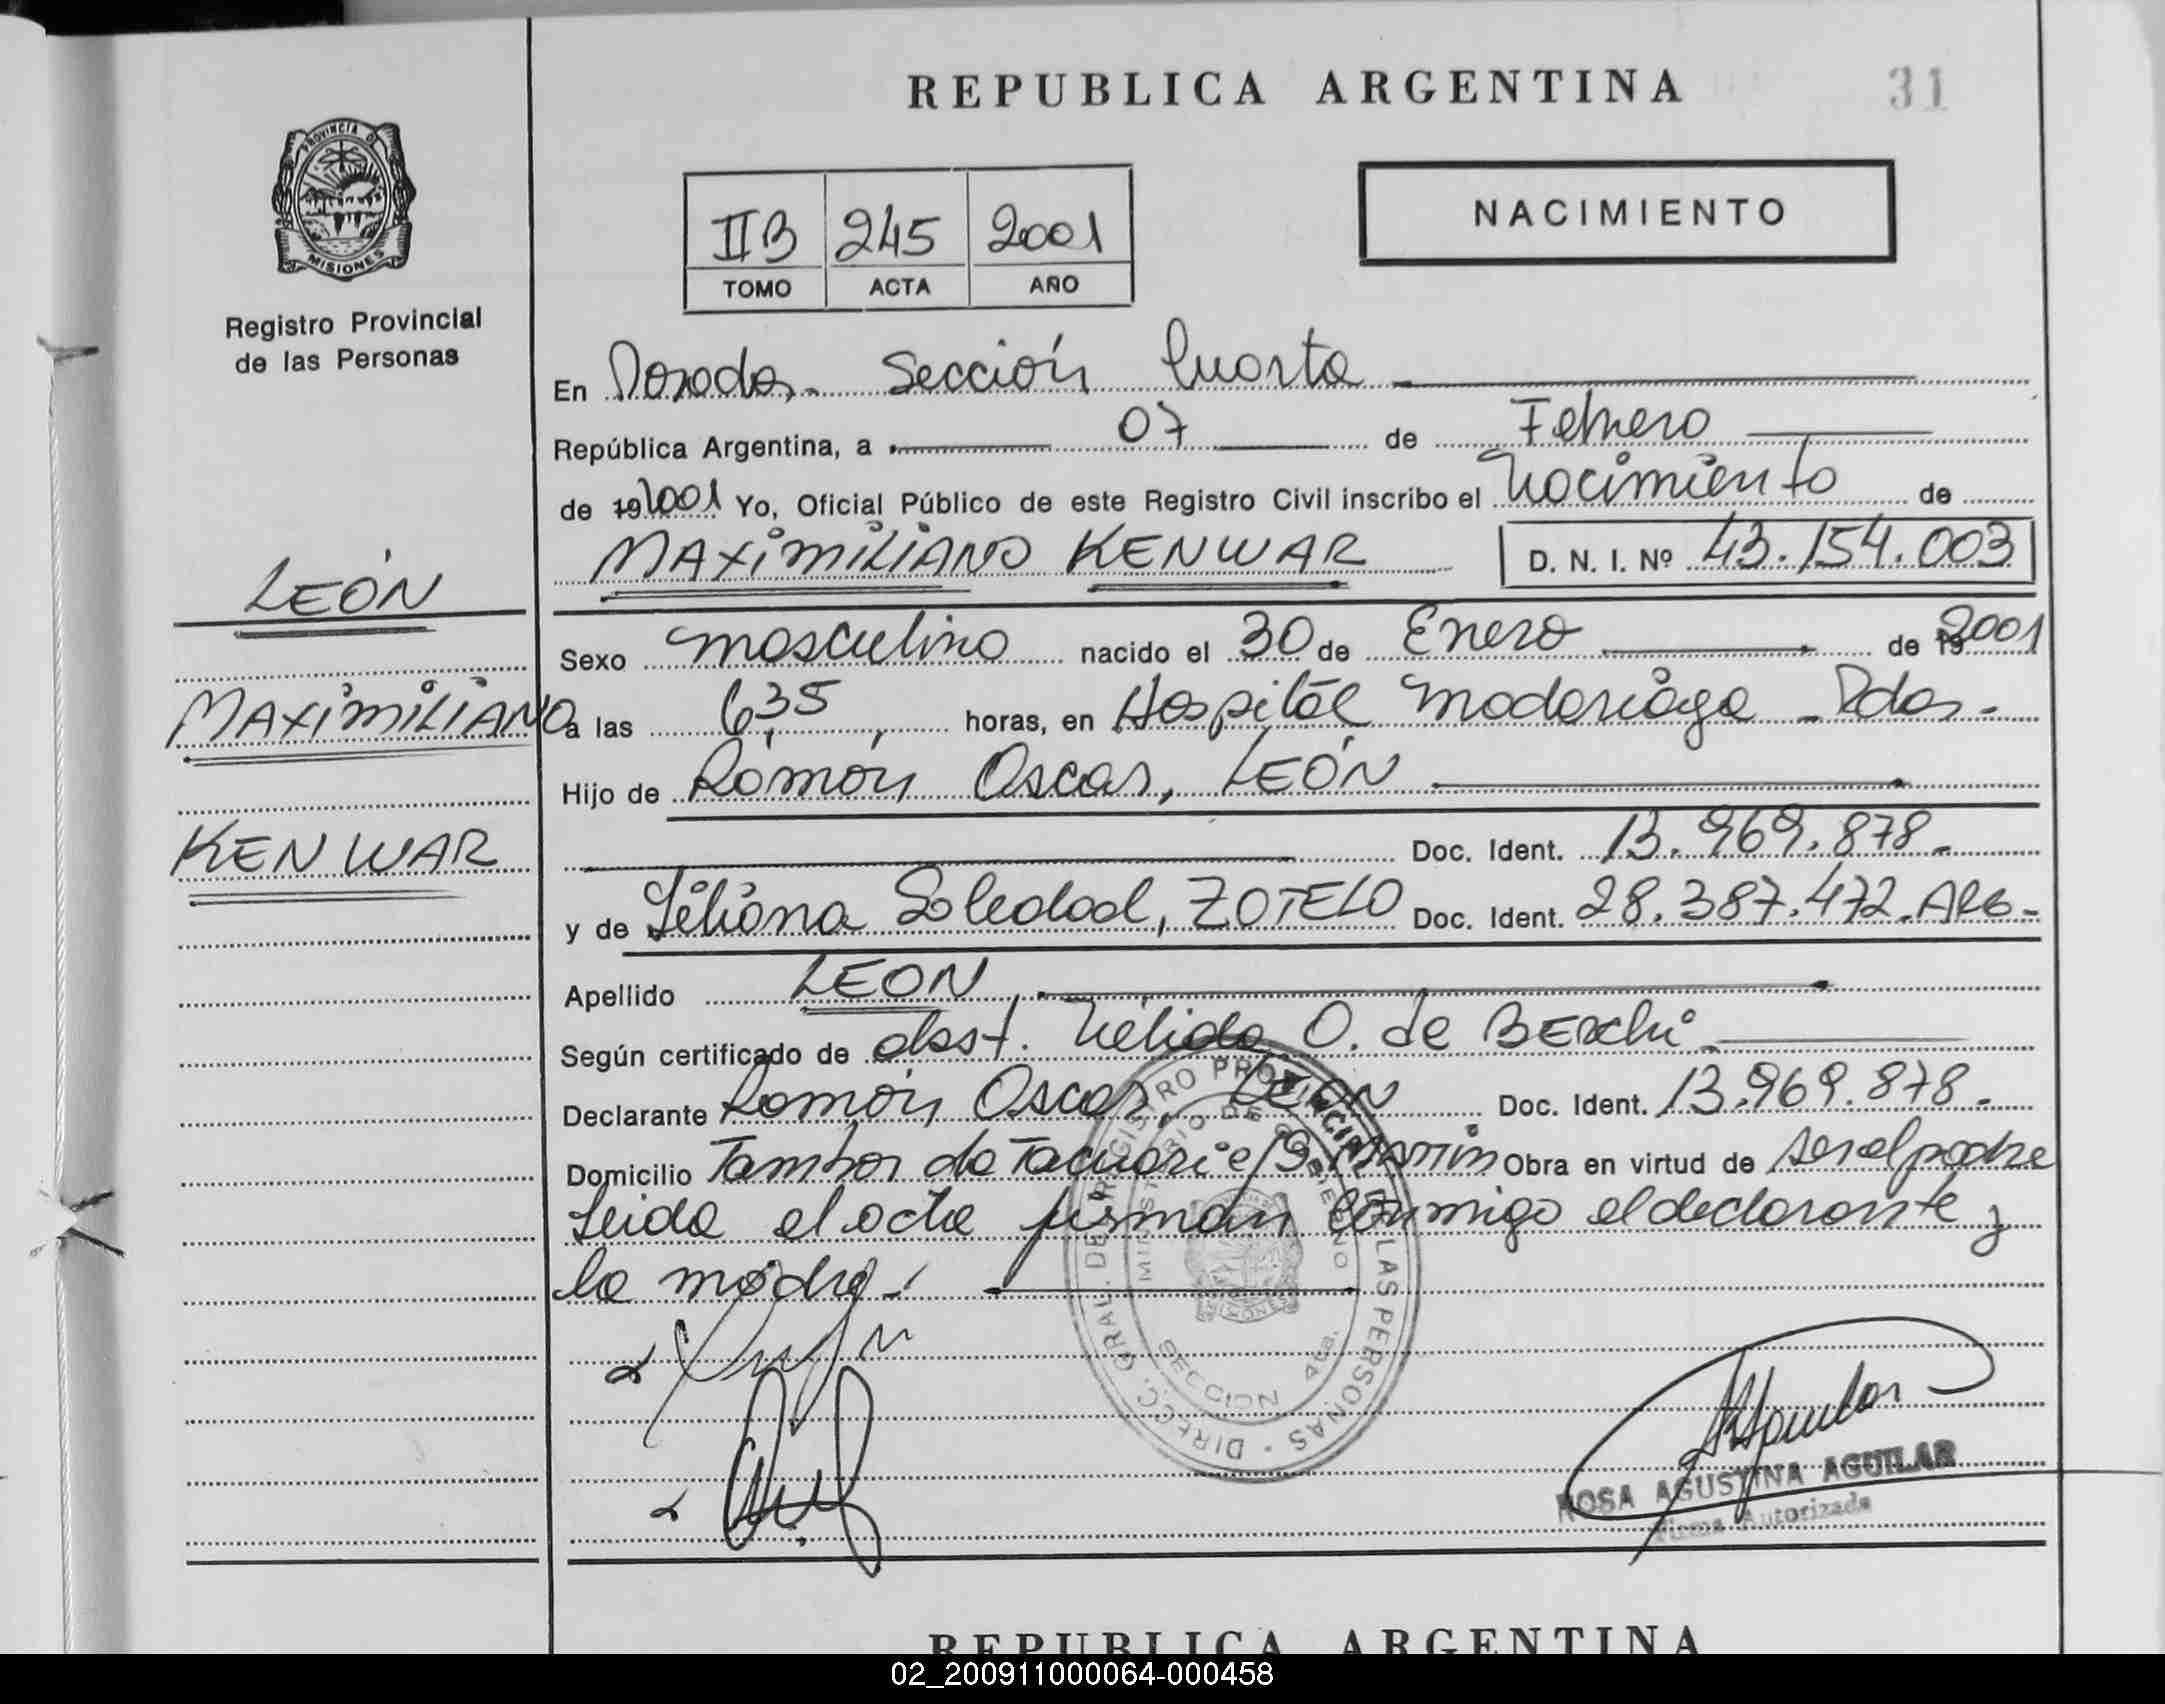 REPUBLICA ARGENTINA
31
PROVINCIA D
MISIONES
Registro Provincial
de las Personas
II B 245 2001
TOMO ACTA AÑO
NACIMIENTO
En Posadas. Sección Cuarta
República Argentina, a 07 de Febrero
de 19 2001 Yo, Oficial Público de este Registro Civil inscribo el Nacimiento de
MAXIMILIANO KENWAR D. N. I. Nº 43.154.003
LEÓN
MAXIMILIANO
KENWAR
Sexo masculino nacido el 30 de Enero de 19 2001
a las 6,35 horas, en Hospital Madariaga - Pdas.
Hijo de Ramón Oscar, LEÓN
Doc. Ident. 13.969.878.
y de Liliana Soledad, ZOTELO Doc. Ident. 28.387.472. ARG.
Apellido LEON
Según certificado de obst. Nélida O. de BERchi
Declarante Ramón Oscar, LEON Doc. Ident. 13.969.878.
Domicilio Tambor de Tacuari e/ S. MARTIN Obra en virtud de ser el padre
Leida el acta firman conmigo el declarante y
la madre.
DIRECC. GRAL. DEL REGISTRO PROVINCIAL DE LAS PERSONAS
MINISTERIO DE GOBIERNO
MISIONES
SECCION 4ta.
ROSA AGUSTINA AGUILAR
Firma Autorizada
REPUBLICA ARGENTINA
02_200911000064-000458